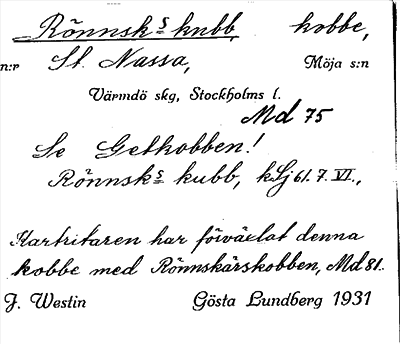 Rönnsk<u>s</u> kubb, kobbe,
n:r St. Nassa, Möja s:n
Värmdö skg, Stockholms l.
Md 75
Se Getkobben!
Rönnsks kubb, kSj 61. 7. VI.,
Kartritaren har förväxlat denna
kobbe med Rönnskärskobben, Md 81.
J. Westin Gösta Lundberg 1931